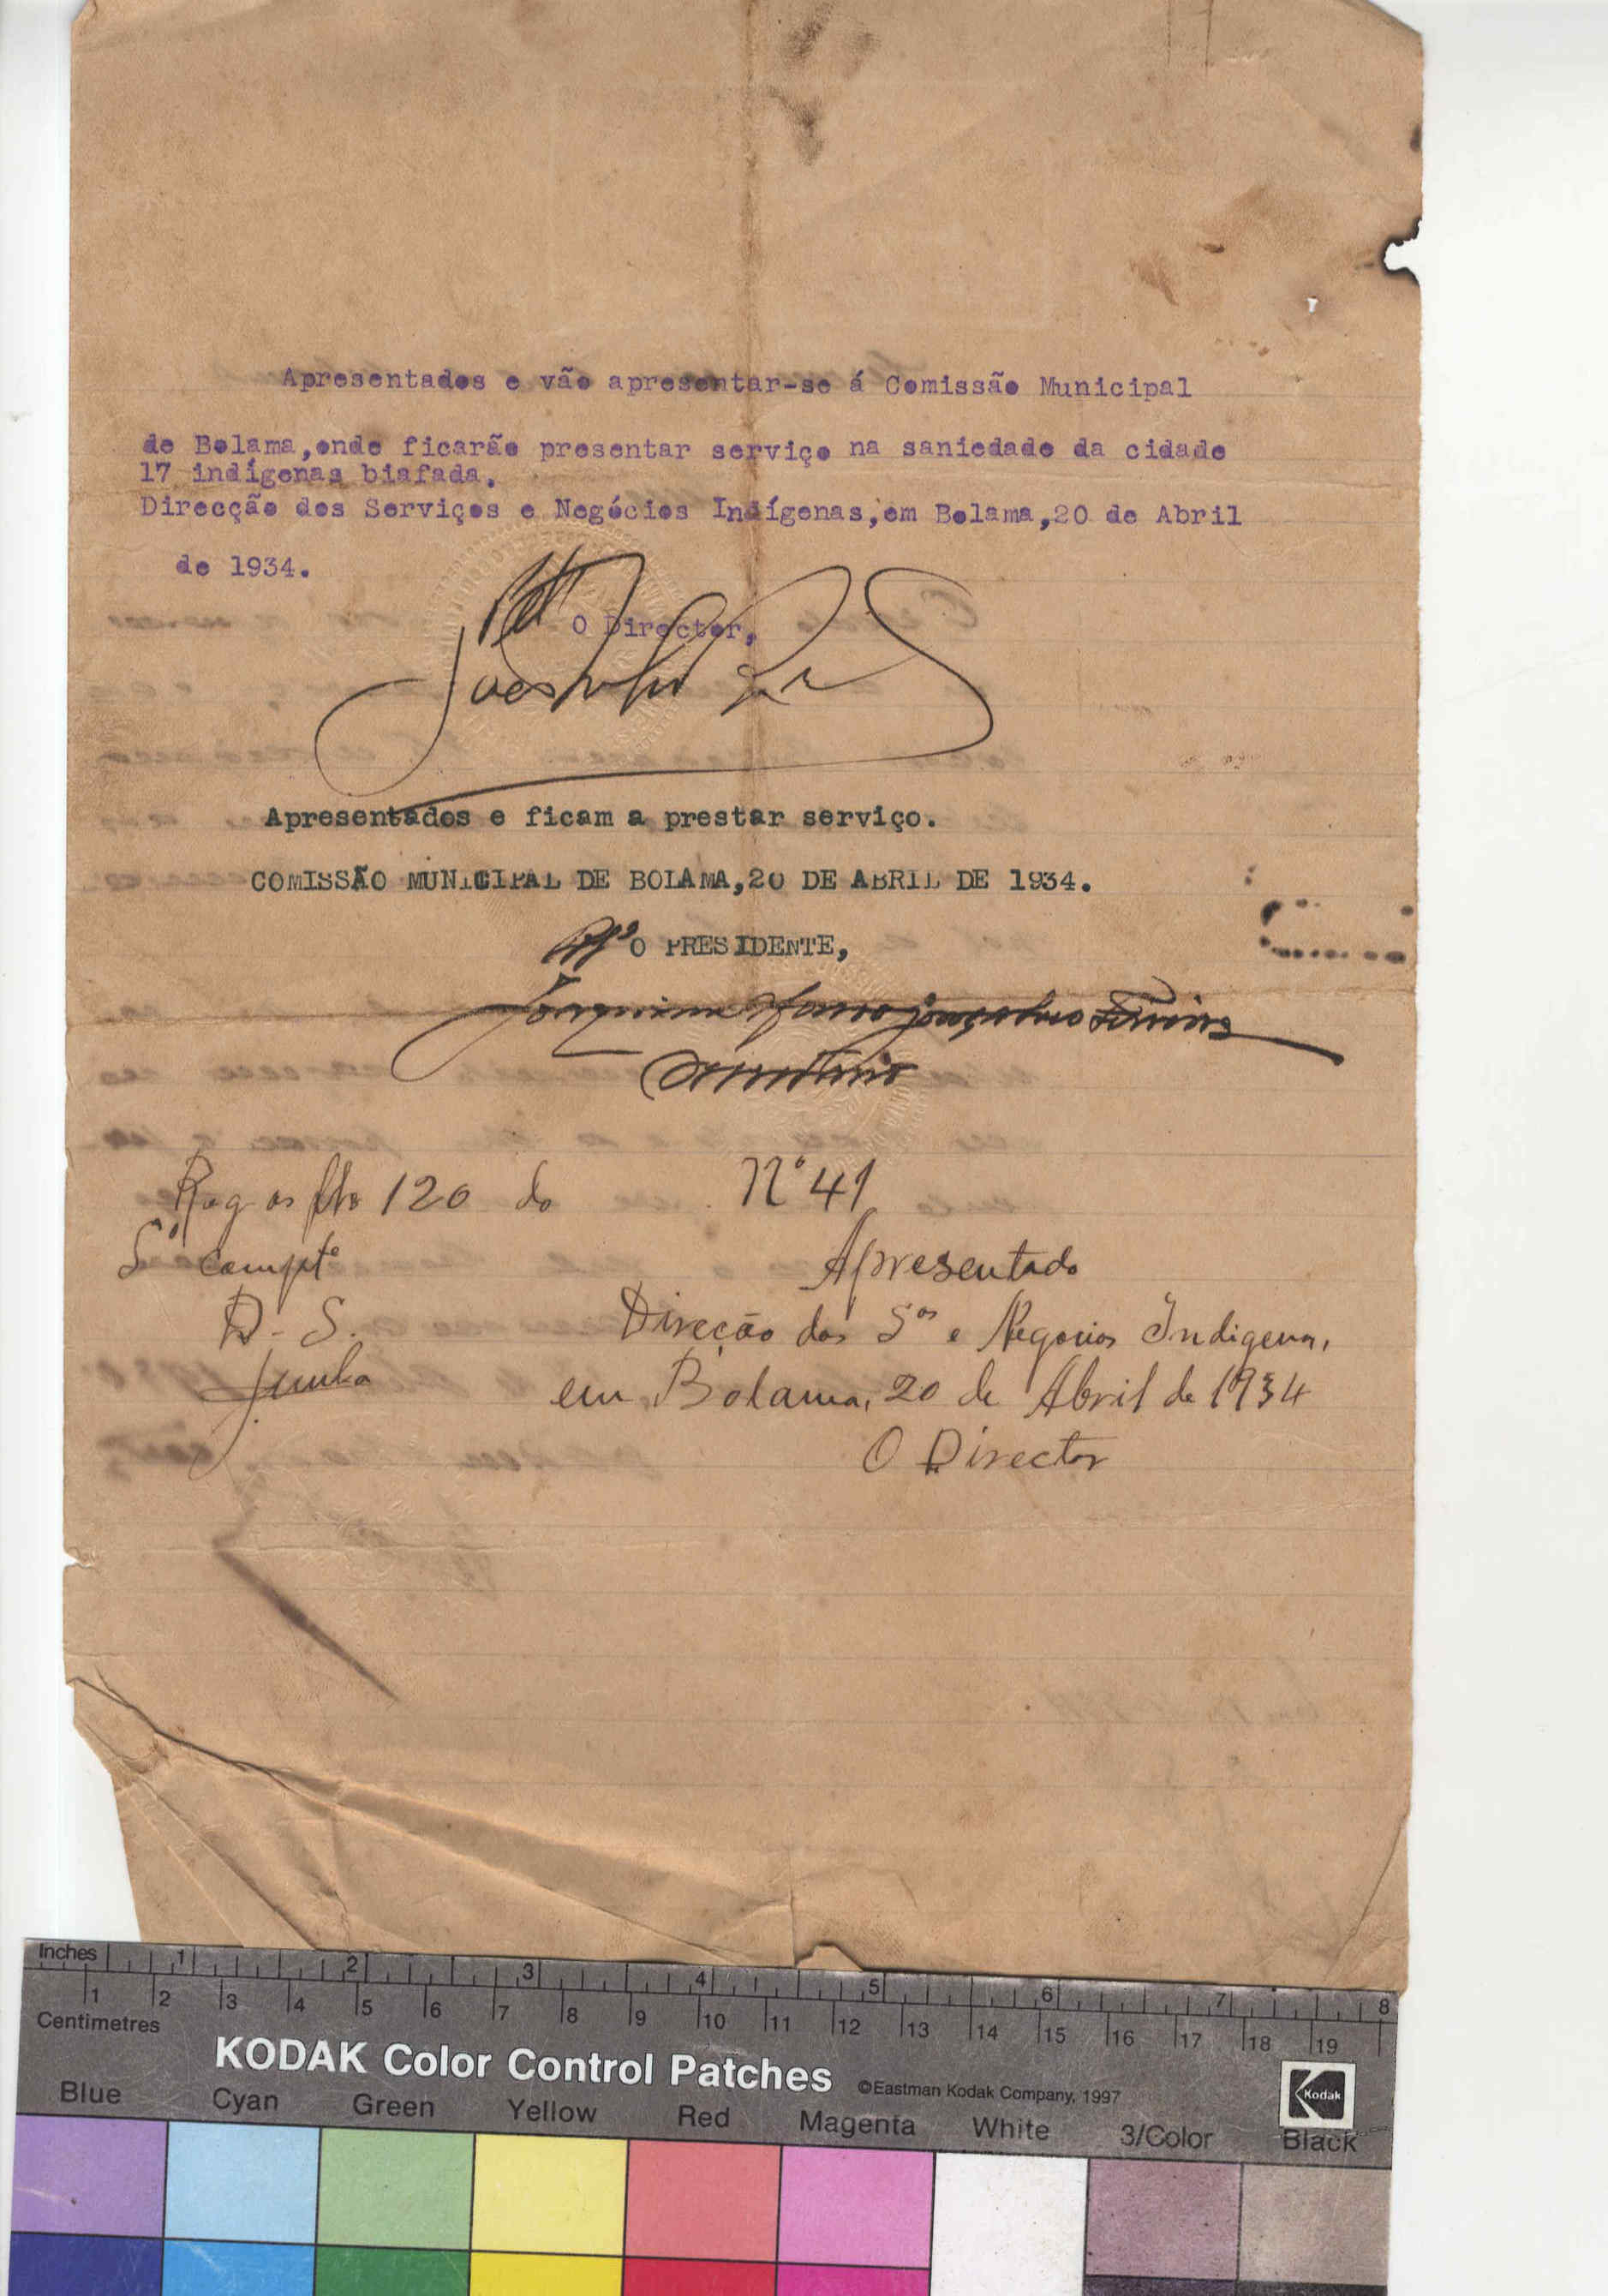 Apresentados e vão apresentar-se á Comissão Municipal
de Bolama,onde ficarão presentar serviço na saniedade da cidade
17 indígenas biafada.
Direcção dos Serviços e Negócios Indígenas,em Bolama,20 de Abril
de 1934.
O Director,
Apresentados e ficam a prestar serviço.
COMISSÃO MUNICIPAL DE BOLAMA,20 DE ABRIL DE 1934.
O PRESIDENTE,
Joaquim
Reg as fls 120 do
Nº 41
compte
Apresentado
D. S.
Direcção dos Sos e Negocios Indigenas,
em Bolama, 20 de Abril de 1934
O Director
Inches 1 2 3 4 5 6 7 8
1 2 3 4 5 6 7 8 9 10 11 12 13 14 15 16 17 18 19
Centimetres
KODAK Color Control Patches ©Eastman Kodak Company, 1997 Kodak
Blue Cyan Green Yellow Red Magenta White 3/Color Black